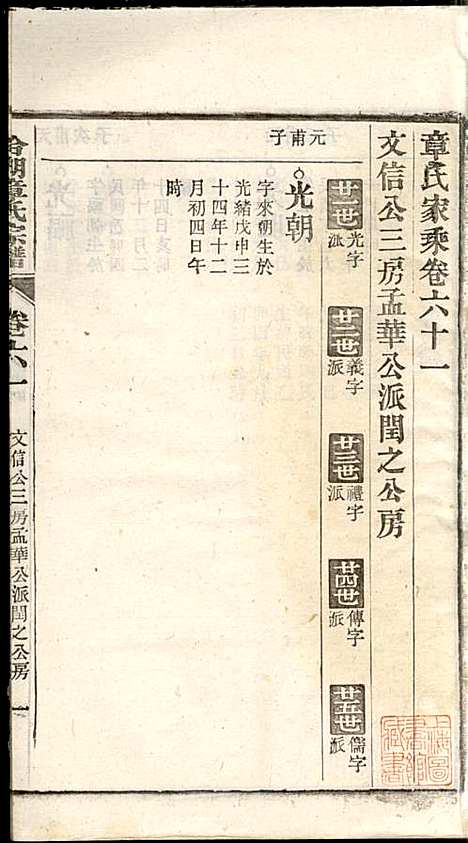 章氏家乘卷六十一
文信公三房孟華公派閏之公房
廿一世 光字派
廿二世 義字派
廿三世 禮字派
廿四世 傳字派
廿五世 儒字派
元甫子
光朝
字來朝生於
光緒戊申三
十四年十二
月初四日午
時
章氏宗譜
卷六一
文信公三房孟華公派閏之公房
一
上海圖書館藏書